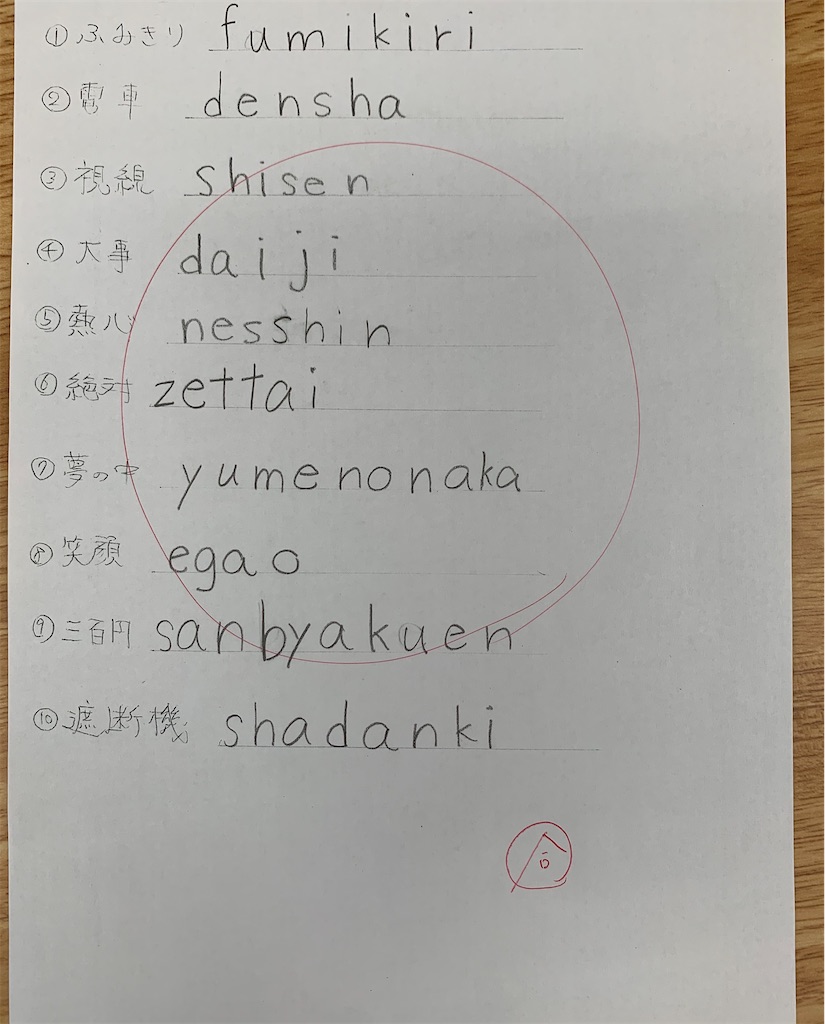 ① ふみきり fumikiri
② 電車 densha
③ 視線 shisen
④ 大事 daiji
⑤ 熱心 nesshin
⑥ 絶対 zettai
⑦ 夢の中 yumenonaka
⑧ 笑顔 egao
⑨ 三百円 sanbyakuen
⑩ 遮断機 shadanki
合